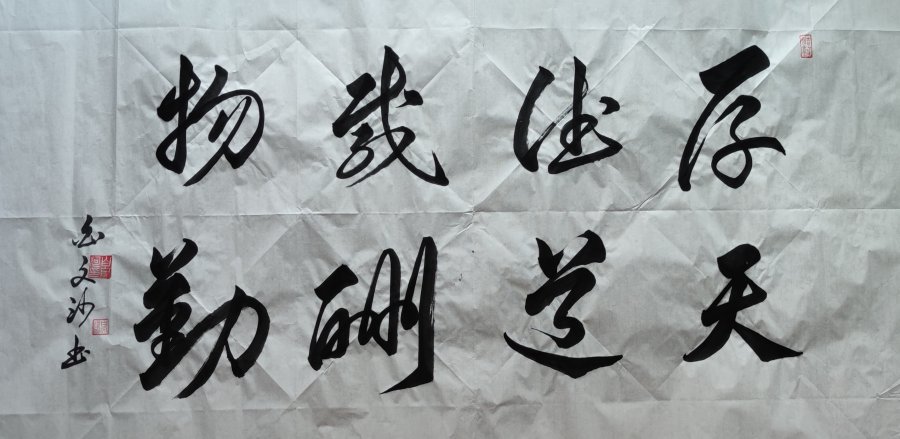 厚德载物
天道酬勤
文沙书